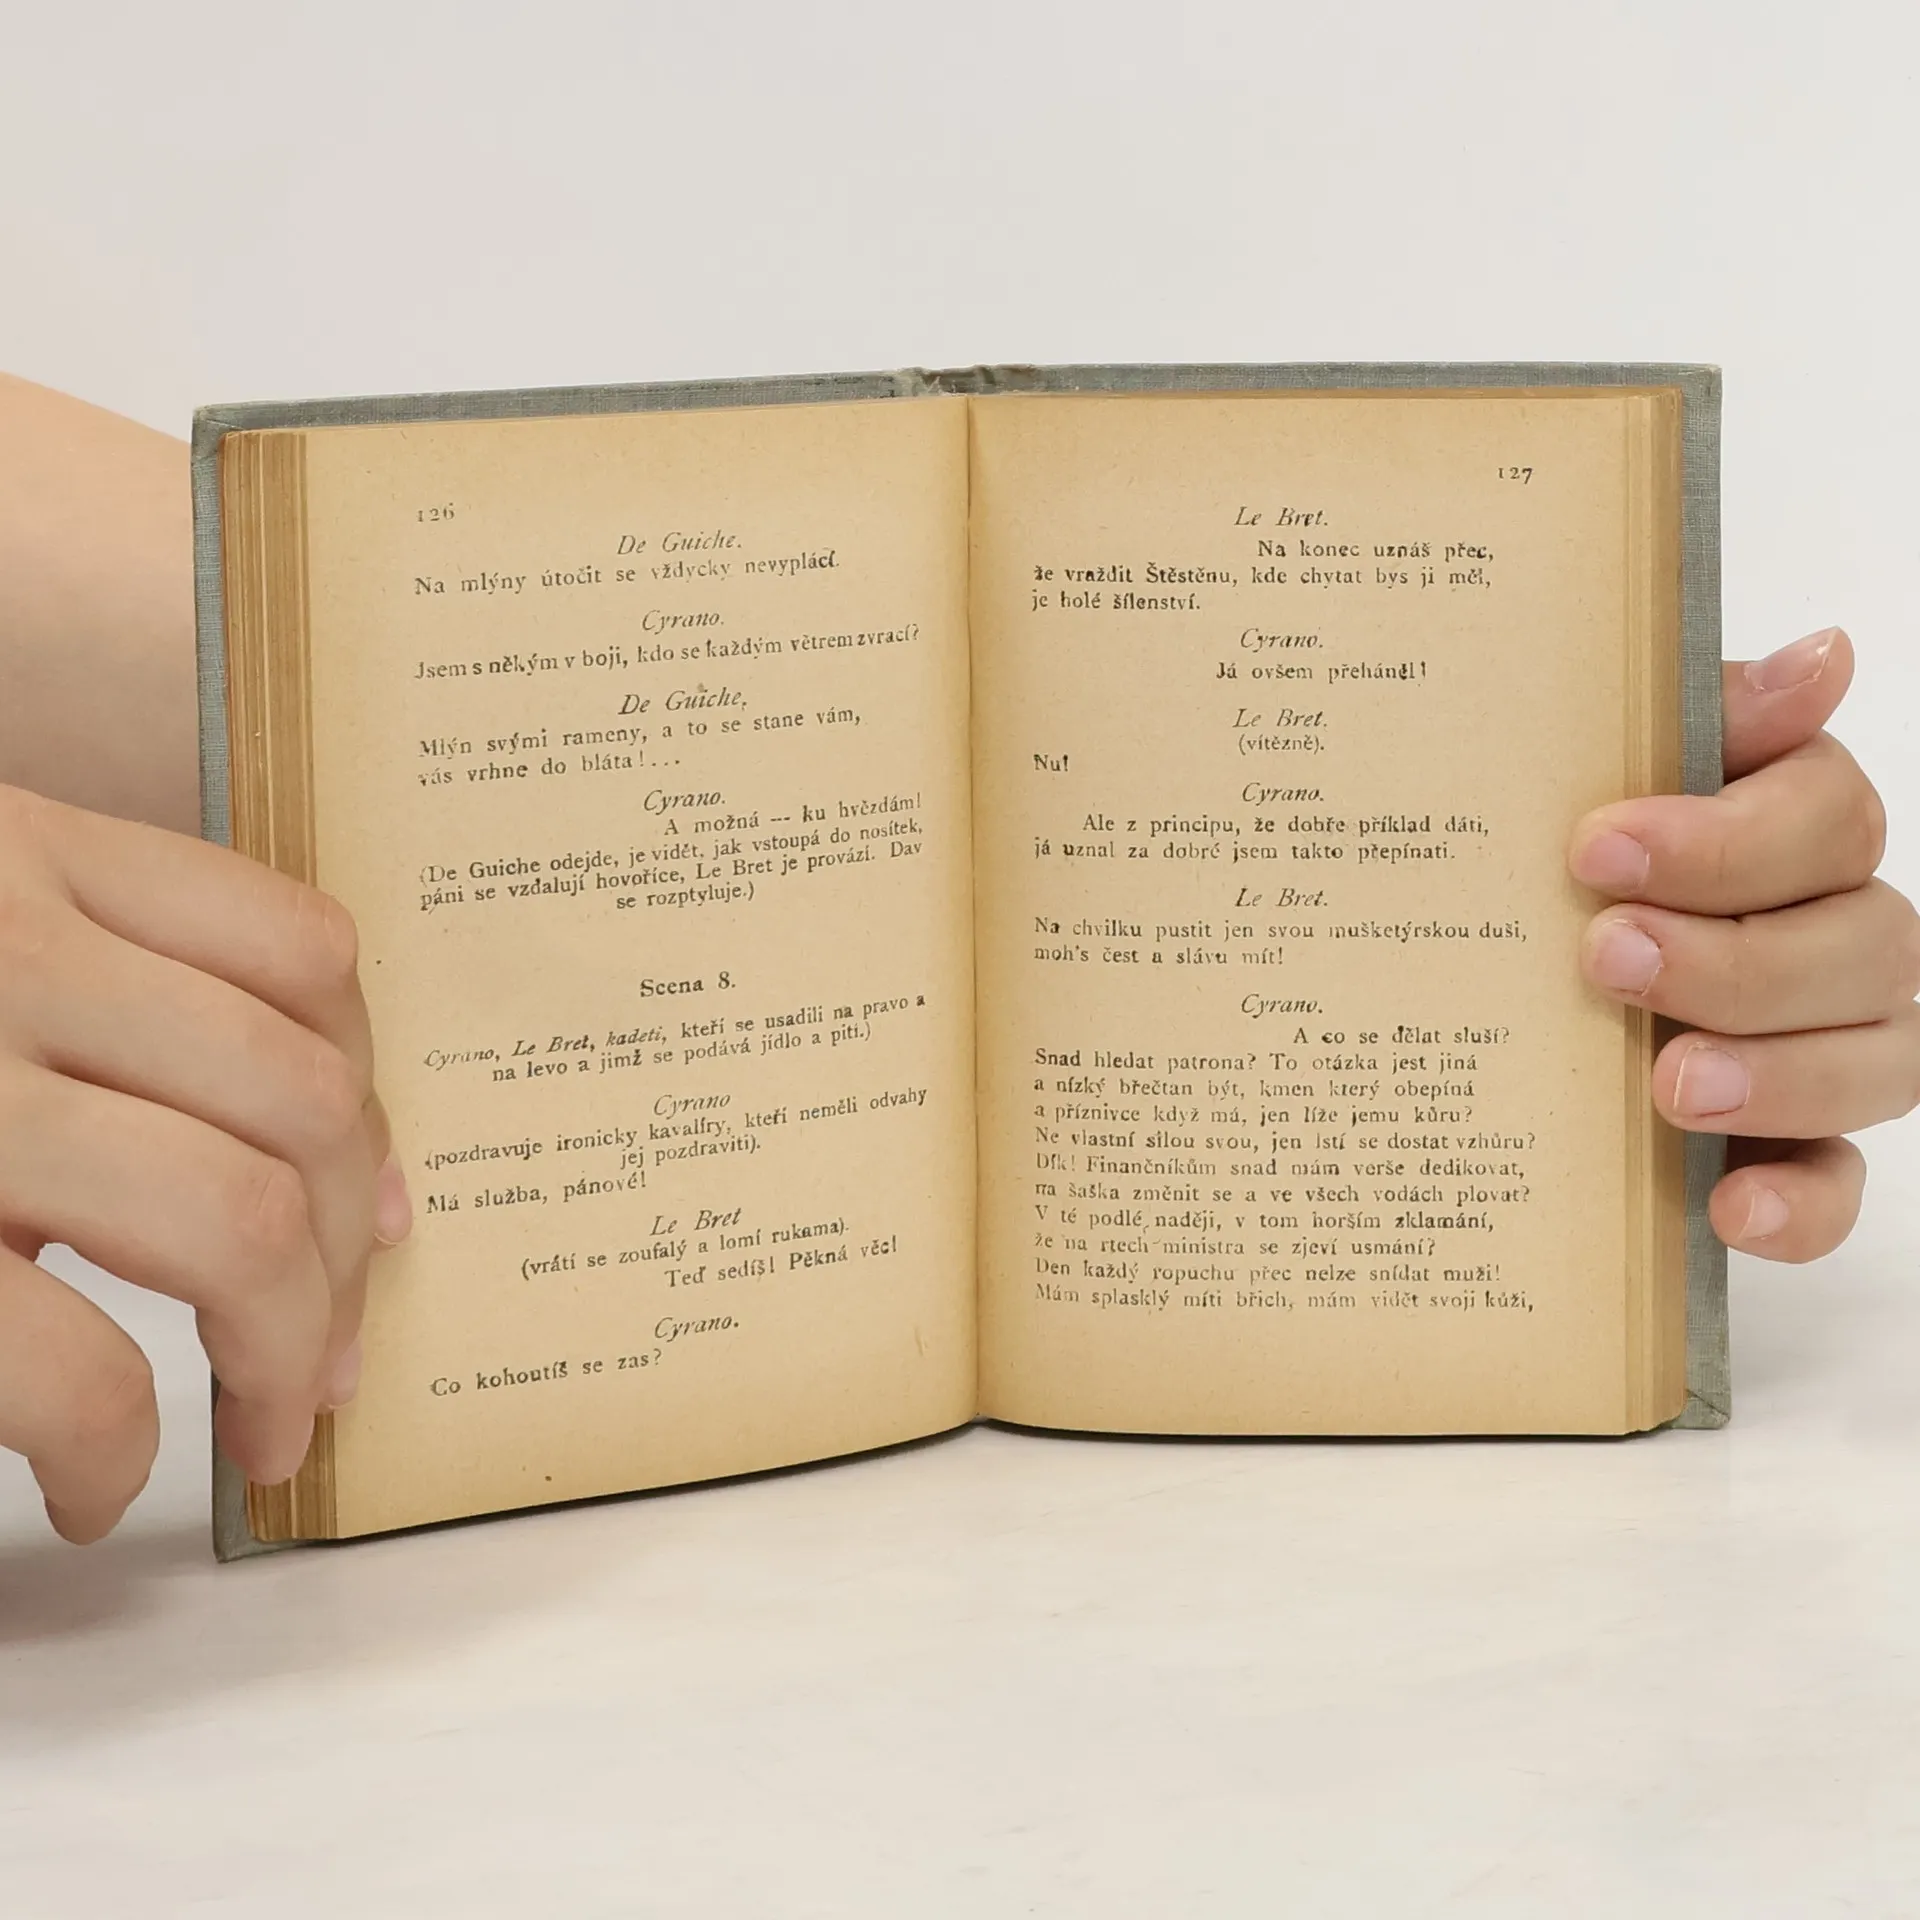 126
De Guiche.
Na mlýny útočit se vždycky nevyplácí.
Cyrano.
Jsem s někým v boji, kdo se každým větrem zvrací?
De Guiche.
Mlýn svými rameny, a to se stane vám,
vás vrhne do bláta!...
Cyrano.
A možná — ku hvězdám!
(De Guiche odejde, je vidět, jak vstoupá do nosítek,
páni se vzdalují hovoříce, Le Bret je provází. Dav
se rozptyluje.)
Scena 8.
Cyrano, Le Bret, kadeti, kteří se usadili na pravo a
na levo a jimž se podává jídlo a pití.)
Cyrano
(pozdravuje ironicky kavalíry, kteří neměli odvahy
jej pozdraviti).
Má služba, pánové!
Le Bret
(vrátí se zoufalý a lomí rukama).
Teď sedíš! Pěkná věc!
Cyrano.
Co kohoutíš se zas?
127
Le Bret.
Na konec uznáš přec,
že vraždit Štěstěnu, kde chytat bys ji měl,
je holé šílenství.
Cyrano.
Já ovšem přeháněl!
Le Bret.
(vítězně).
Nu!
Cyrano.
Ale z principu, že dobře příklad dáti,
já uznal za dobré jsem takto přepínati.
Le Bret.
Na chvilku pustit jen svou mušketýrskou duši,
moh's čest a slávu mít!
Cyrano.
A co se dělat sluší?
Snad hledat patrona? To otázka jest jiná
a nízký břečtan být, kmen který obepíná
a příznivce když má, jen líže jemu kůru?
Ne vlastní silou svou, jen lstí se dostat vzhůru?
Dík! Finančníkům snad mám verše dedikovat,
na šaška změnit se a ve všech vodách plovat?
V té podlé naději, v tom horším zklamání,
že na rtech ministra se zjeví usmání?
Den každý ropuchu přec nelze snídat muži!
Mám splasklý míti břich, mám vidět svoji kůži,